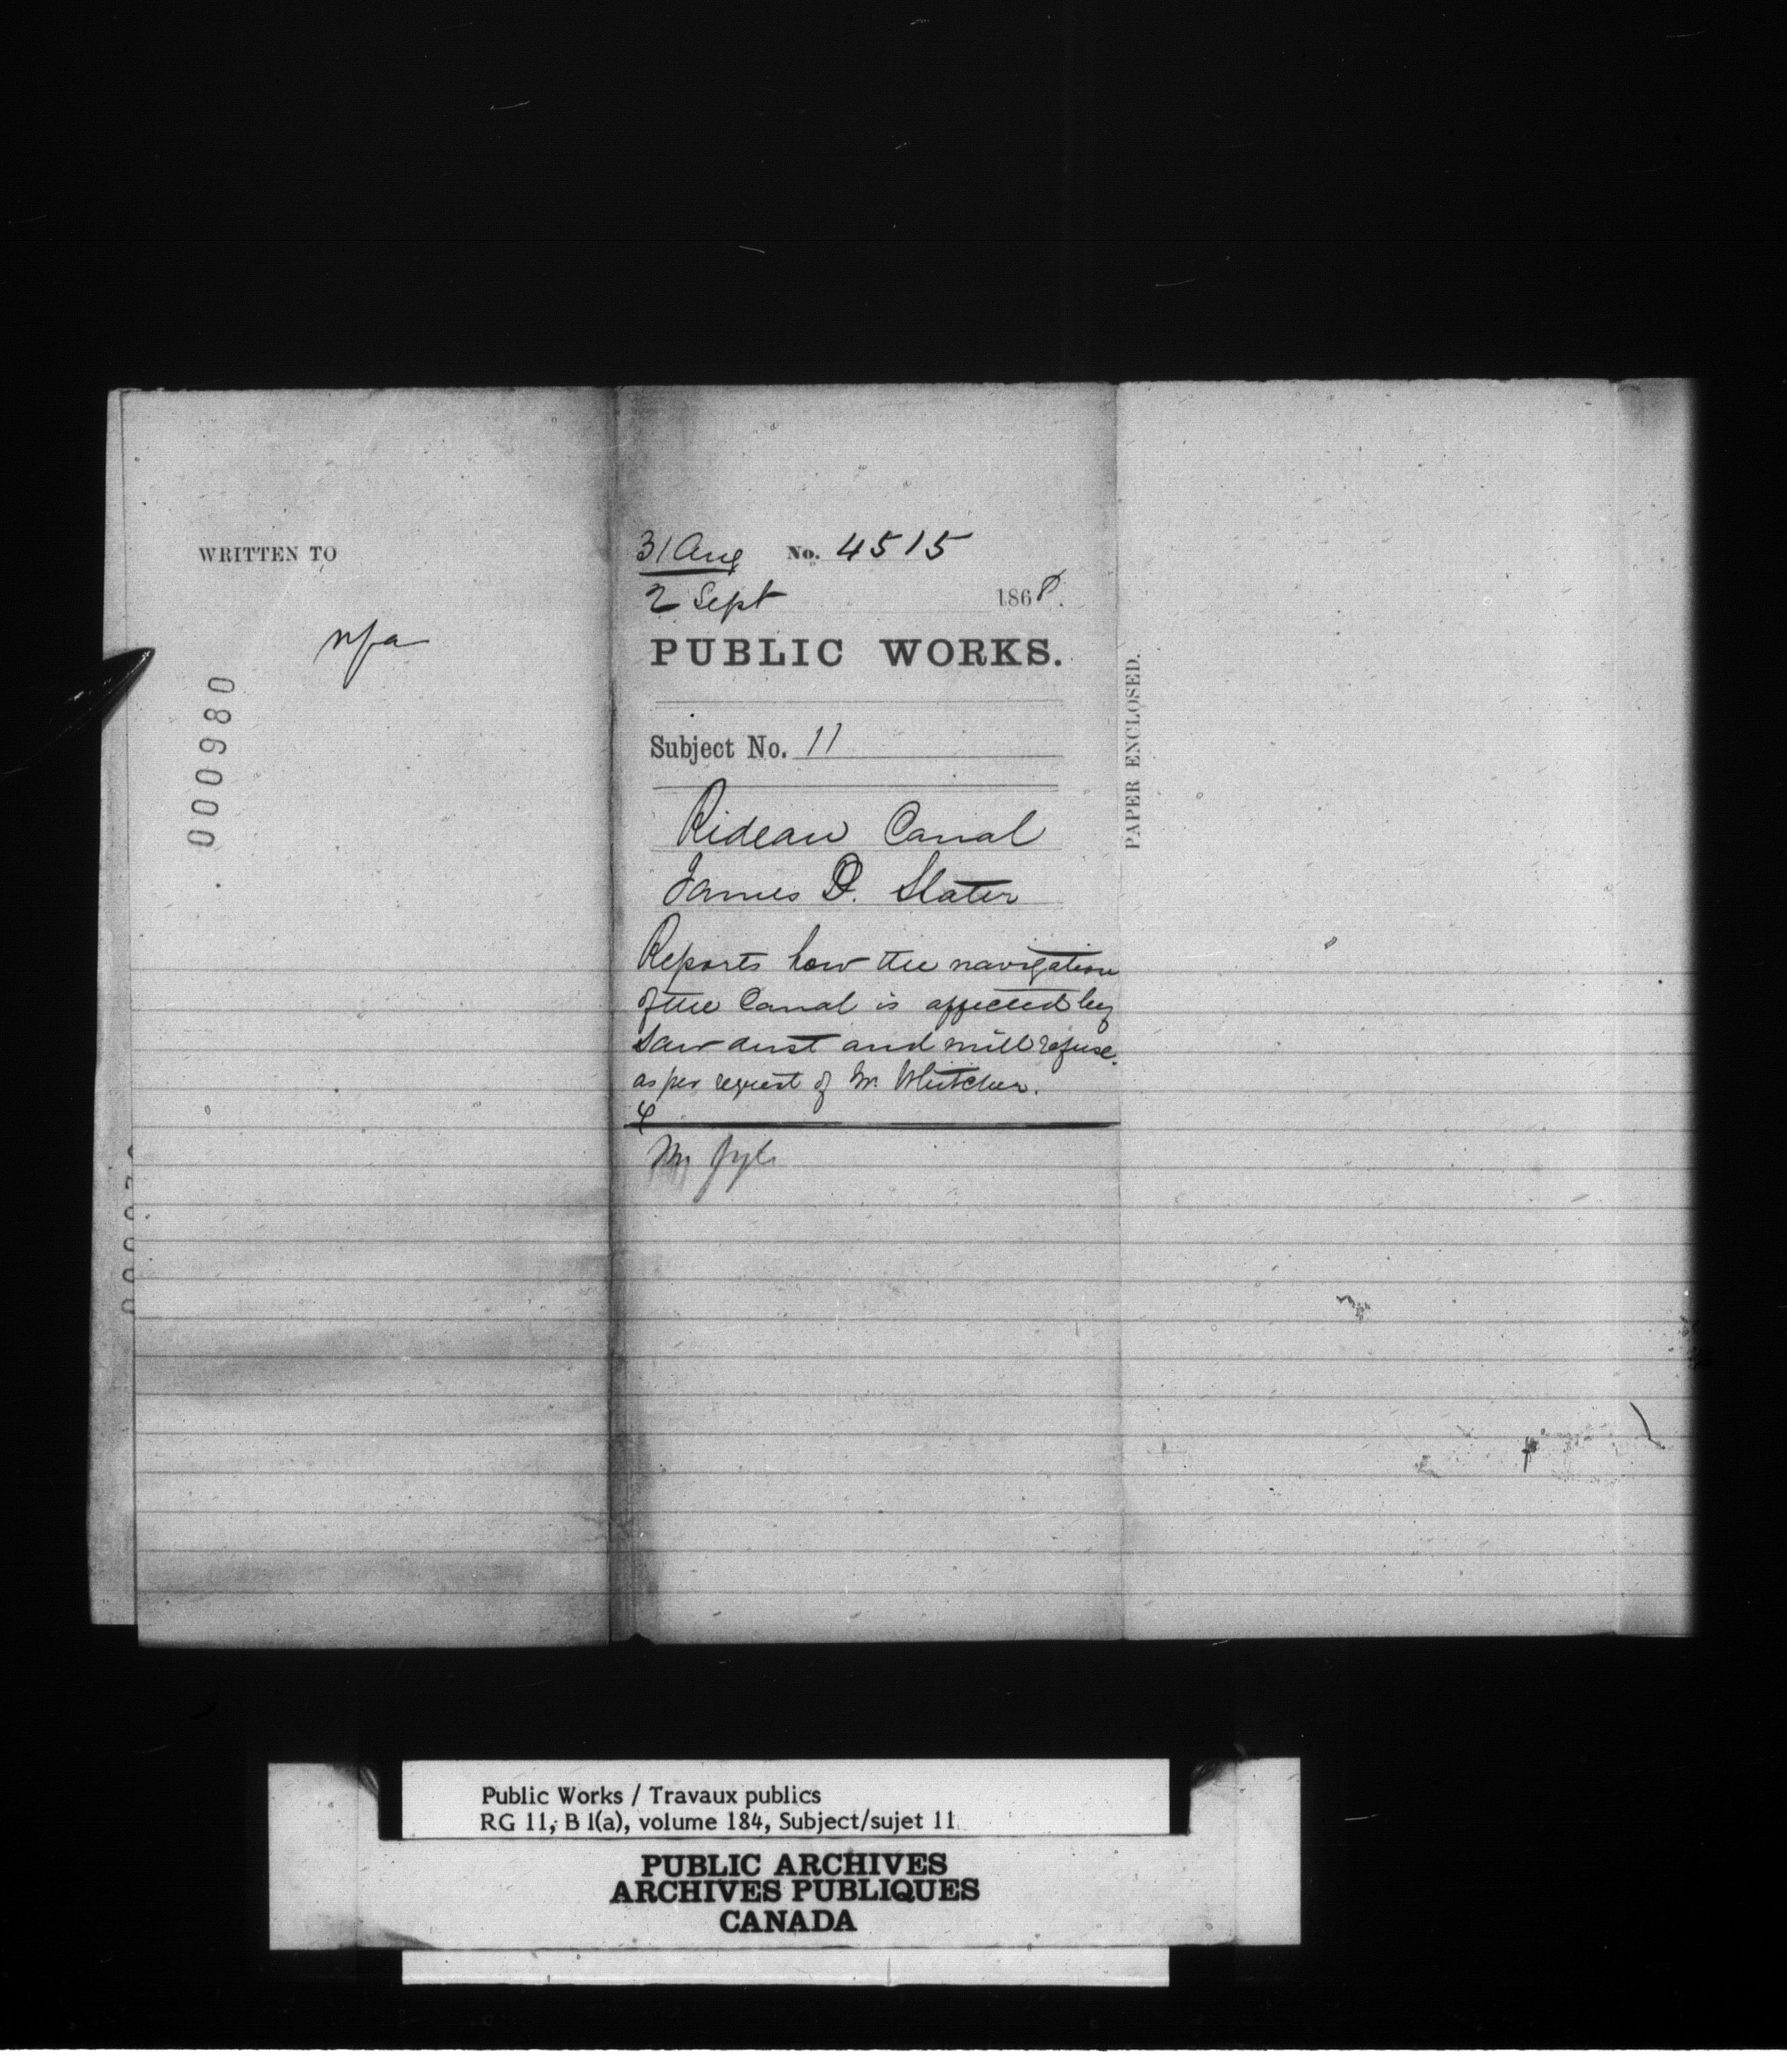 WRITTEN TO
nfa
000980
31 Aug No. 4515
2 Sept 1868.
PUBLIC WORKS.
Subject No. 11
Rideau Canal
James D. Slater
Reports how the navigation
of the Canal is affected by
Saw dust and mill refuse.
as per request of Mr. Whitcher.
Mr
PAPER ENCLOSED.
Public Works / Travaux publics
RG 11, B 1(a), volume 184, Subject/sujet 11
PUBLIC ARCHIVES
ARCHIVES PUBLIQUES
CANADA